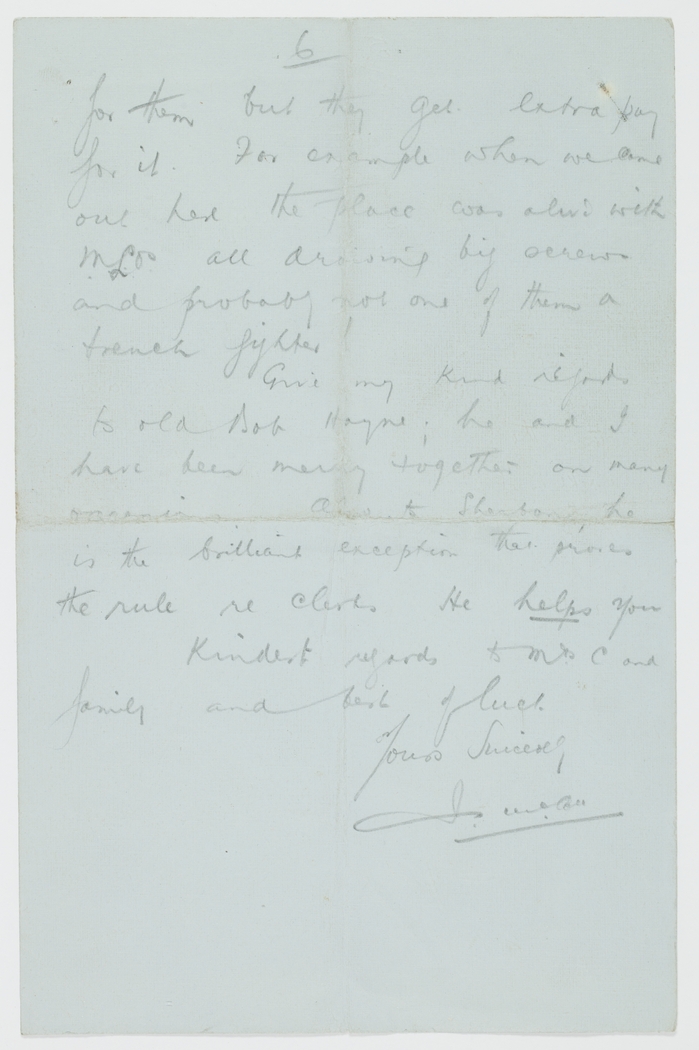 6
for them but they get extra pay
for it. For example when we came
out here the place was alive with
MLOs all drawing big screws
and probably not one of them a
trench fighter!
Give my kind regards
to old Bob Hayne; he and I
have been merry together on many
occasions. Also to he
is the brilliant exception that proves
the rule re clerks He helps you
Kindest regards to Mrs C and
family and best of luck
Yours Sincerely